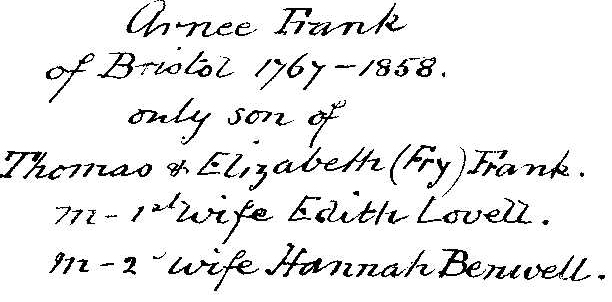 Arnee Frank
of Bristol 1767-1858.
only son of
Thomas & Elizabeth (Fry) Frank.
m-1st wife Edith Lovell.
m-2 wife Hannah Benwell.